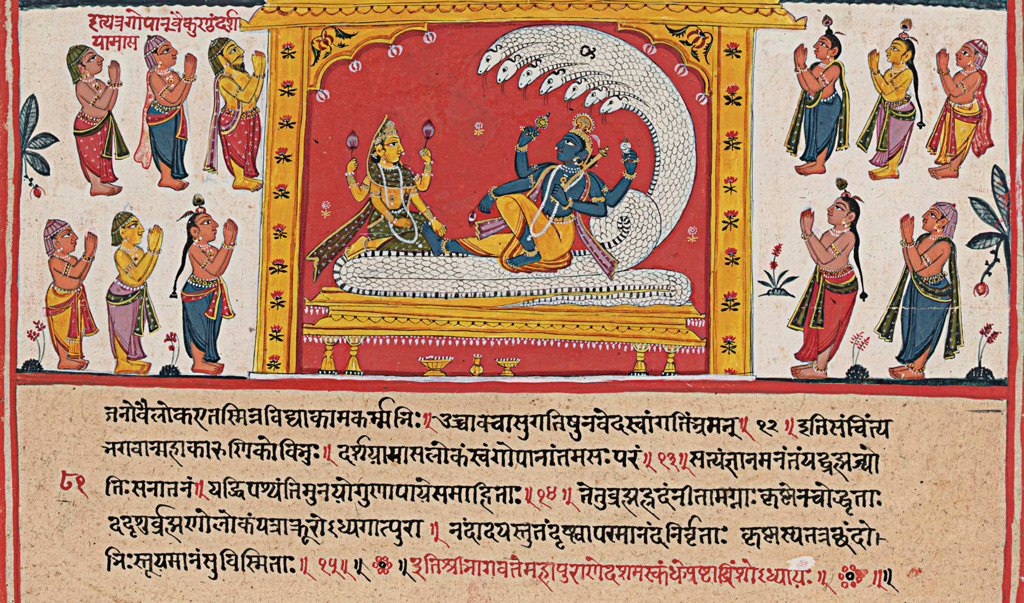 इत्यत्रगोपान्वैकुण्ठंदर्श
यामास
जनोवैलोकएतस्मिन्नविद्याकामकर्मभिः॥ उच्चावचासुगतिषुनवेदस्वांगतिंभ्रमन्॥ १२ ॥ इतिसंचिंत्य
भगवान्महाकारुणिकोविभुः॥ दर्शयामासलोकंस्वंगोपानांतमसःपरं॥१३॥ सत्यंज्ञानमनंतंयद्ब्रह्मज्यो
८१ तिःसनातनं॥ यद्धिपश्यंतिमुनयोगुणापायेसमाहिताः॥१४॥ तेतुब्रह्मह्रदंनीतामग्नाः कृष्णेनचोद्धृताः
ददृशुर्ब्रह्मणोलोकंयत्राक्रूरोऽध्यगात्पुरा ॥ नंदादयस्तुतंदृष्ट्वापरमानंदनिर्वृताः कृष्णस्यतत्रछंदो
भिःस्तूयमानंसुविस्मिताः॥ १५॥ ॥ इतिश्रीभागवतेमहापुराणेदशमस्कंधेअष्टाविंशोऽध्यायः॥ ॥